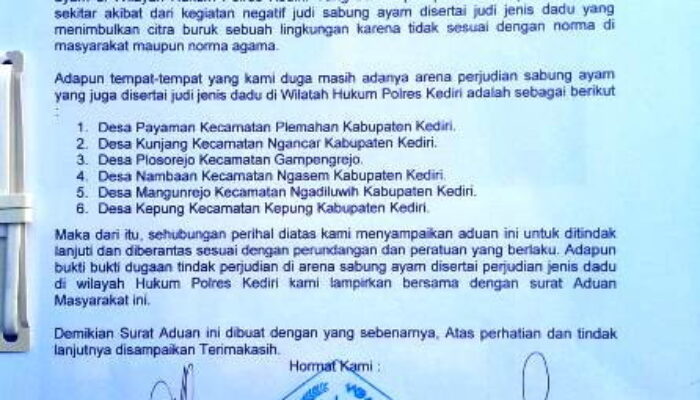 sekitar akibat dari kegiatan negatif judi sabung ayam disertai judi jenis dadu yang
menimbulkan citra buruk sebuah lingkungan karena tidak sesuai dengan norma di
masyarakat maupun norma agama.
Adapun tempat-tempat yang kami duga masih adanya arena perjudian sabung ayam
yang juga disertai judi jenis dadu di Wilatah Hukum Polres Kediri adalah sebagai berikut
:
1. Desa Payaman Kecamatan Plemahan Kabupaten Kediri.
2. Desa Kunjang Kecamatan Ngancar Kabupaten Kediri.
3. Desa Plosorejo Kecamatan Gampengrejo.
4. Desa Nambaan Kecamatan Ngasem Kabupaten Kediri.
5. Desa Mangunrejo Kecamatan Ngadiluwih Kabupaten Kediri.
6. Desa Kepung Kecamatan Kepung Kabupaten Kediri.
Maka dari itu, sehubungan perihal diatas kami menyampaikan aduan ini untuk ditindak
lanjuti dan diberantas sesuai dengan perundangan dan peratuan yang berlaku. Adapun
bukti bukti dugaan tindak perjudian di arena sabung ayam disertai perjudian jenis dadu
di wilayah Hukum Polres Kediri kami lampirkan bersama dengan surat Aduan
Masyarakat ini.
Demikian Surat Aduan ini dibuat dengan yang sebenarnya, Atas perhatian dan tindak
lanjutnya disampaikan Terimakasih.
Hormat Kami :